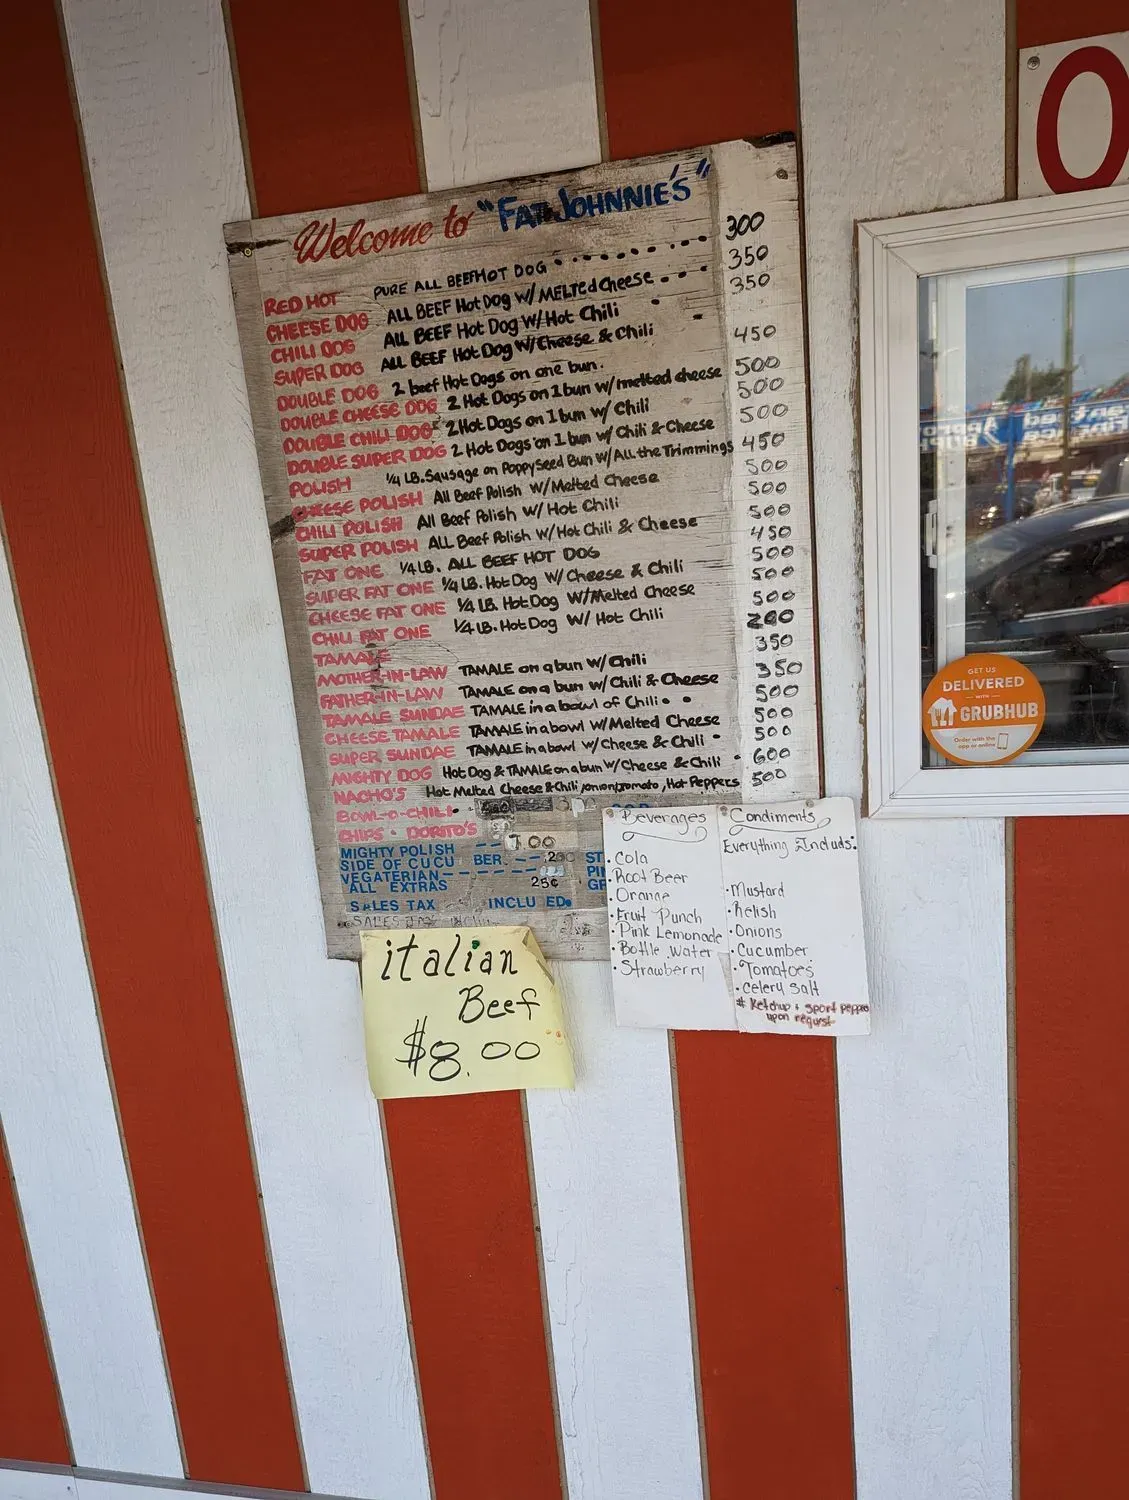 Welcome to "FAT JOHNNIE'S"
RED HOT PURE ALL BEEF HOT DOG 300
CHEESE DOG ALL BEEF Hot Dog W/ MELTed Cheese 350
CHILI DOG ALL BEEF Hot Dog W/ Hot Chili 350
SUPER DOG ALL BEEF Hot Dog W/ Cheese & Chili
DOUBLE DOG 2 beef Hot Dogs on one bun. 450
DOUBLE CHEESE DOG 2 Hot Dogs on 1 bun w/ melted cheese 500
DOUBLE CHILI DOG 2 Hot Dogs on 1 bun w/ Chili 500
DOUBLE SUPER DOG 2 Hot Dogs on 1 bun w/ Chili & Cheese 500
POLISH 1/4 LB. Sausage on PoppySeed Bun W/ All the Trimmings 450
CHEESE POLISH All Beef Polish W/ Melted Cheese 500
CHILI POLISH All Beef Polish W/ Hot Chili 500
SUPER POLISH ALL Beef Polish W/ Hot Chili & Cheese 500
FAT ONE 1/4 LB. ALL BEEF HOT DOG 450
SUPER FAT ONE 1/4 LB. Hot Dog W/ Cheese & Chili 500
CHEESE FAT ONE 1/4 LB. Hot Dog W/ Melted Cheese 500
CHILI FAT ONE 1/4 LB. Hot Dog W/ Hot Chili 500
TAMALE 200
MOTHER-IN-LAW TAMALE on a bun w/ Chili 350
FATHER-IN-LAW TAMALE on a bun w/ Chili & Cheese 350
TAMALE SUNDAE TAMALE in a bowl of Chili 500
CHEESE TAMALE TAMALE in a bowl W/ Melted Cheese 500
SUPER SUNDAE TAMALE in a bowl w/ Cheese & Chili 500
MIGHTY DOG Hot Dog & TAMALE on a bun W/ Cheese & Chili 600
NACHO'S Hot Melted Cheese & Chili, onion, tomato, Hot Peppers 500
BOWL-O-CHILI
CHIPS • DORITO'S
MIGHTY POLISH 7.00
SIDE OF CUCU BER.
VEGATERIAN
ALL EXTRAS 25¢
SALES TAX INCLU ED
italian
Beef
$8.00
Beverages
• Cola
• Root Beer
• Orange
• Fruit Punch
• Pink Lemonade
• Bottle Water
• Strawberry
Condiments
Everything Includs:
• Mustard
• Relish
• Onions
• Cucumber
• Tomatoes
• Celery Salt
* Ketchup + sport peppers
upon request
O
GET US
DELIVERED
WITH
GRUBHUB
Order with the
app or online